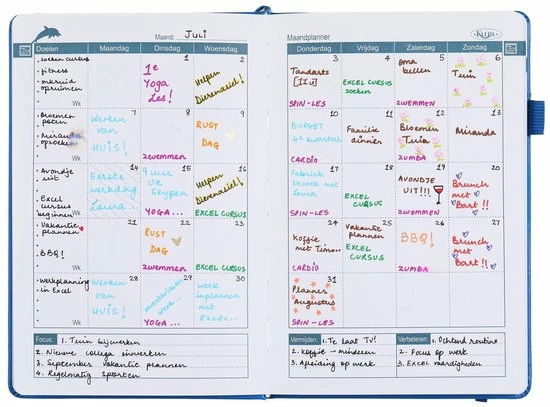 Maand Juli
Doelen Maandag Dinsdag Woensdag
zoeken cursus
fitness
opruimen
Wk
1
1e
Yoga
Les!
2
Helpen
Dierenasiel!
Bloemen
poten
opzoeken
Wk
7
Werken
van
HUIS!
8
zwemmen
9
RUST
DAG
Avondje
uit
Excel
cursus
beginnen
Wk
14
Eerste
werkdag
Laura...
15
9 uur
Skypen
YOGA...
16
Helpen
Dierenasiel!
EXCEL CURSUS
Vakantie
plannen
BBQ!
Wk
21
22
RUST
DAG
zwemmen
23
EXCEL CURSUS
werkplanning
in Excel
Wk
28
Werken
van
HUIS!
29
werk...
YOGA...
30
werk
inplannen
met
EXCEL...
Focus: 1. Tuin bijwerken
2. Nieuwe collega inwerken
3. September vakantie plannen
4. Regelmatig sporten
Maandplanner
Kalpa
Donderdag Vrijdag Zaterdag Zondag
3
Tandarts
[11u]
SPIN-LES
4
EXCEL CURSUS
zoeken
5
Oma
bellen
ZWEMMEN
6
Tuin
10
BUDGET
4e kwartaal
CARDIO
11
Familie
dinner
12
Bloemen
Tuin
ZUMBA
13
Miranda
17
Fabriek
bezoek met
Laura
SPIN-LES
18
EXCEL
CURSUS
19
AVONDJE
UIT!!!
ZWEMMEN
20
Brunch
met
Bart!!
24
Koffie
met Timo...
CARDIO
25
Vakantie
plannen
EXCEL
CURSUS
26
BBQ!
ZUMBA
27
Brunch
met
Bart!!
31
Planner
Augustus
SPIN-LES
Vermijden: 1. Te laat TV!
2. Koffie - minderen
3. Afleiding op werk
Verbeteren: 1. Ochtend routine
2. Focus op werk
3. EXCEL vaardigheden